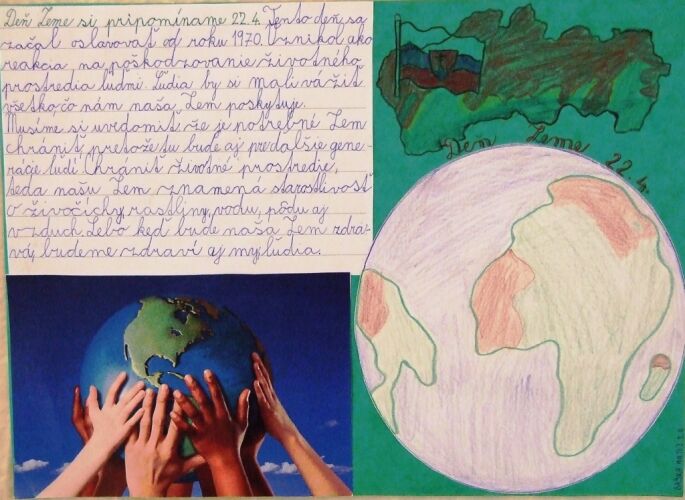 Deň Zeme si pripomíname 22.4. Tento deň sa
začal oslavovať od roku 1970. Vznikol ako
reakcia na poškodzovanie životného
prostredia ľuďmi. Ľudia by si mali vážiť
všetko, čo nám naša Zem poskytuje.
Musíme si uvedomiť, že je potrebné Zem
chrániť, pretože tu bude aj pre ďalšie gene-
rácie ľudí. Chrániť životné prostredie,
teda našu Zem znamená starostlivosť
o živočíchy, rastliny, vodu, pôdu aj
vzduch. Lebo keď bude naša Zem zdra-
vá, budeme zdraví aj my, ľudia.
Deň Zeme 22.4.